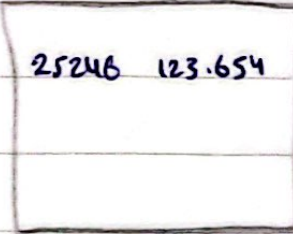 25246 123.654